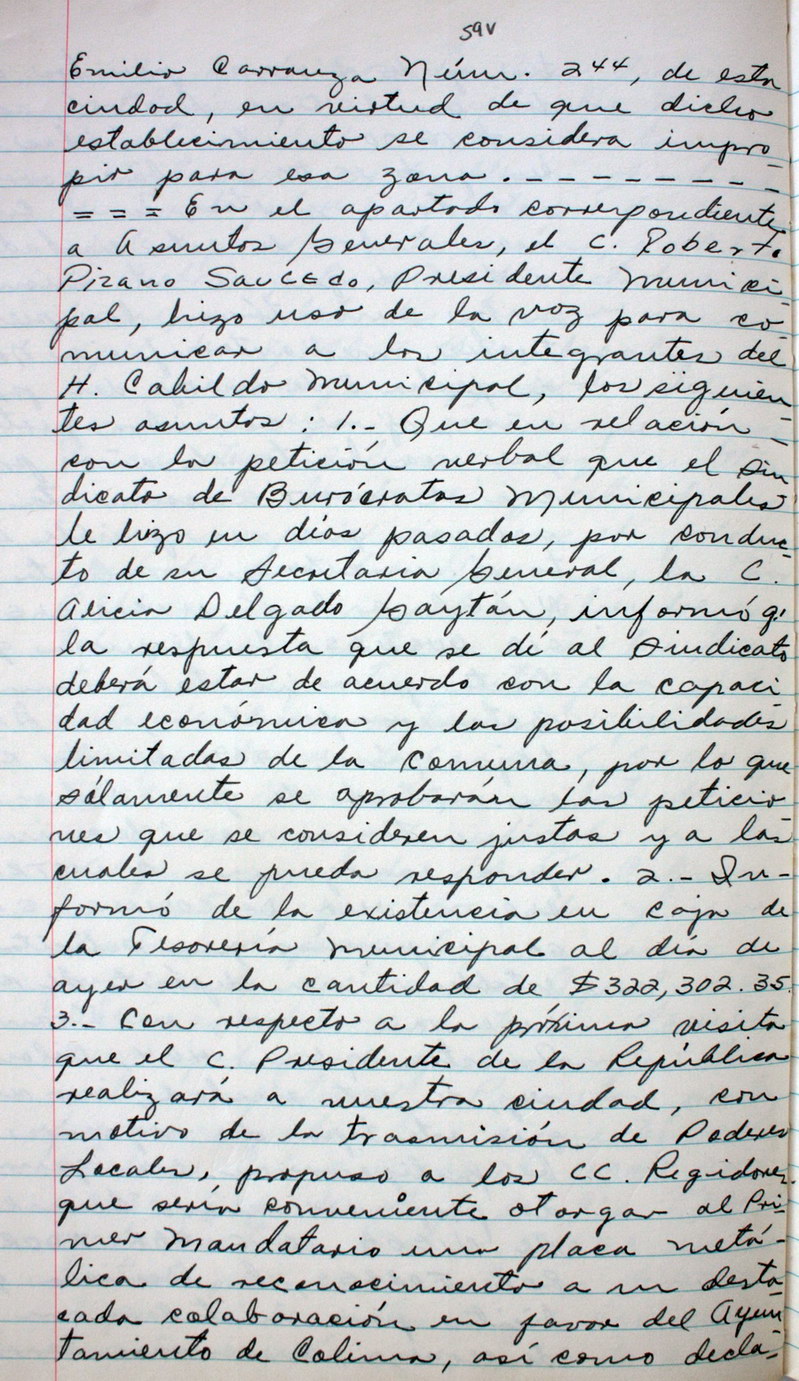 59v
Emilio Carranza Núm. 244, de esta
ciudad, en virtud de que dicho
establecimiento se considera impro-
pio para esa zona . - - - - - - - - -
= = = En el apartado correspondiente
a Asuntos Generales, el C. Roberto
Pizano Saucedo, Presidente Munici-
pal, hizo uso de la voz para co-
municar a los integrantes del
H. Cabildo Municipal, los siguien-
tes asuntos : 1.- Que en relación
con la petición verbal que el Sin-
dicato de Burócratas Municipales
le hizo en días pasados, por conduc-
to de su Secretaria General, la C.
Alicia Delgado Gaytán, informó q'
la respuesta que se dé al Sindicato
deberá estar de acuerdo con la capaci-
dad económica y las posibilidades
limitadas de la Comuna, por lo que
sólamente se aprobarán las peticio-
nes que se consideren justas y a las
cuales se pueda responder. 2.- In-
formó de la existencia en caja de
la Tesorería Municipal al día de
ayer en la cantidad de $322,302.35.
3.- Con respecto a la próxima visita
que el C. Presidente de la República
realizará a nuestra ciudad, con
motivo de la trasmisión de Poderes
Locales, propuso a los CC. Regidores
que sería conveniente otorgar al Pri-
mer Mandatario una placa metá-
lica de reconocimiento a su desta-
cada colaboración en favor del Ayun-
tamiento de Colima, así como decla-